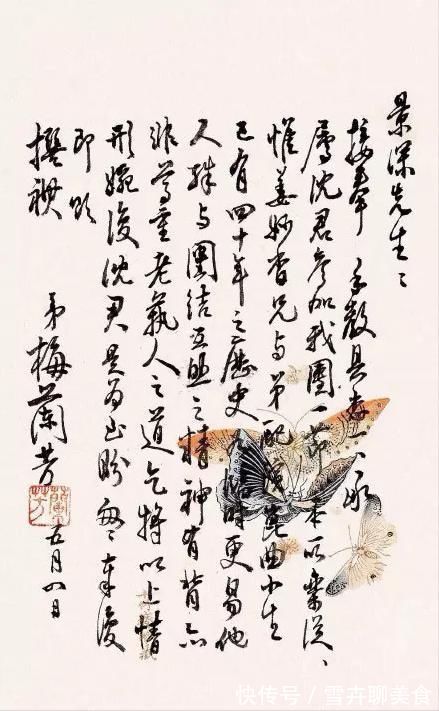 景深先生：
接奉 手教具悉一一承
屬沈君參加我團一節本所樂從、
惟姜妙香兄与弟配演崑曲小生
已有四十年之歷史 臨時更易他
人殊与團結互助之精神有背亦
非尊重老藝人之道乞將以上情
形婉復沈君是为至盼匆匆奉復
即頌
撰祺
弟梅蘭芳
五月四日
快传号 / 雪卉聊美食